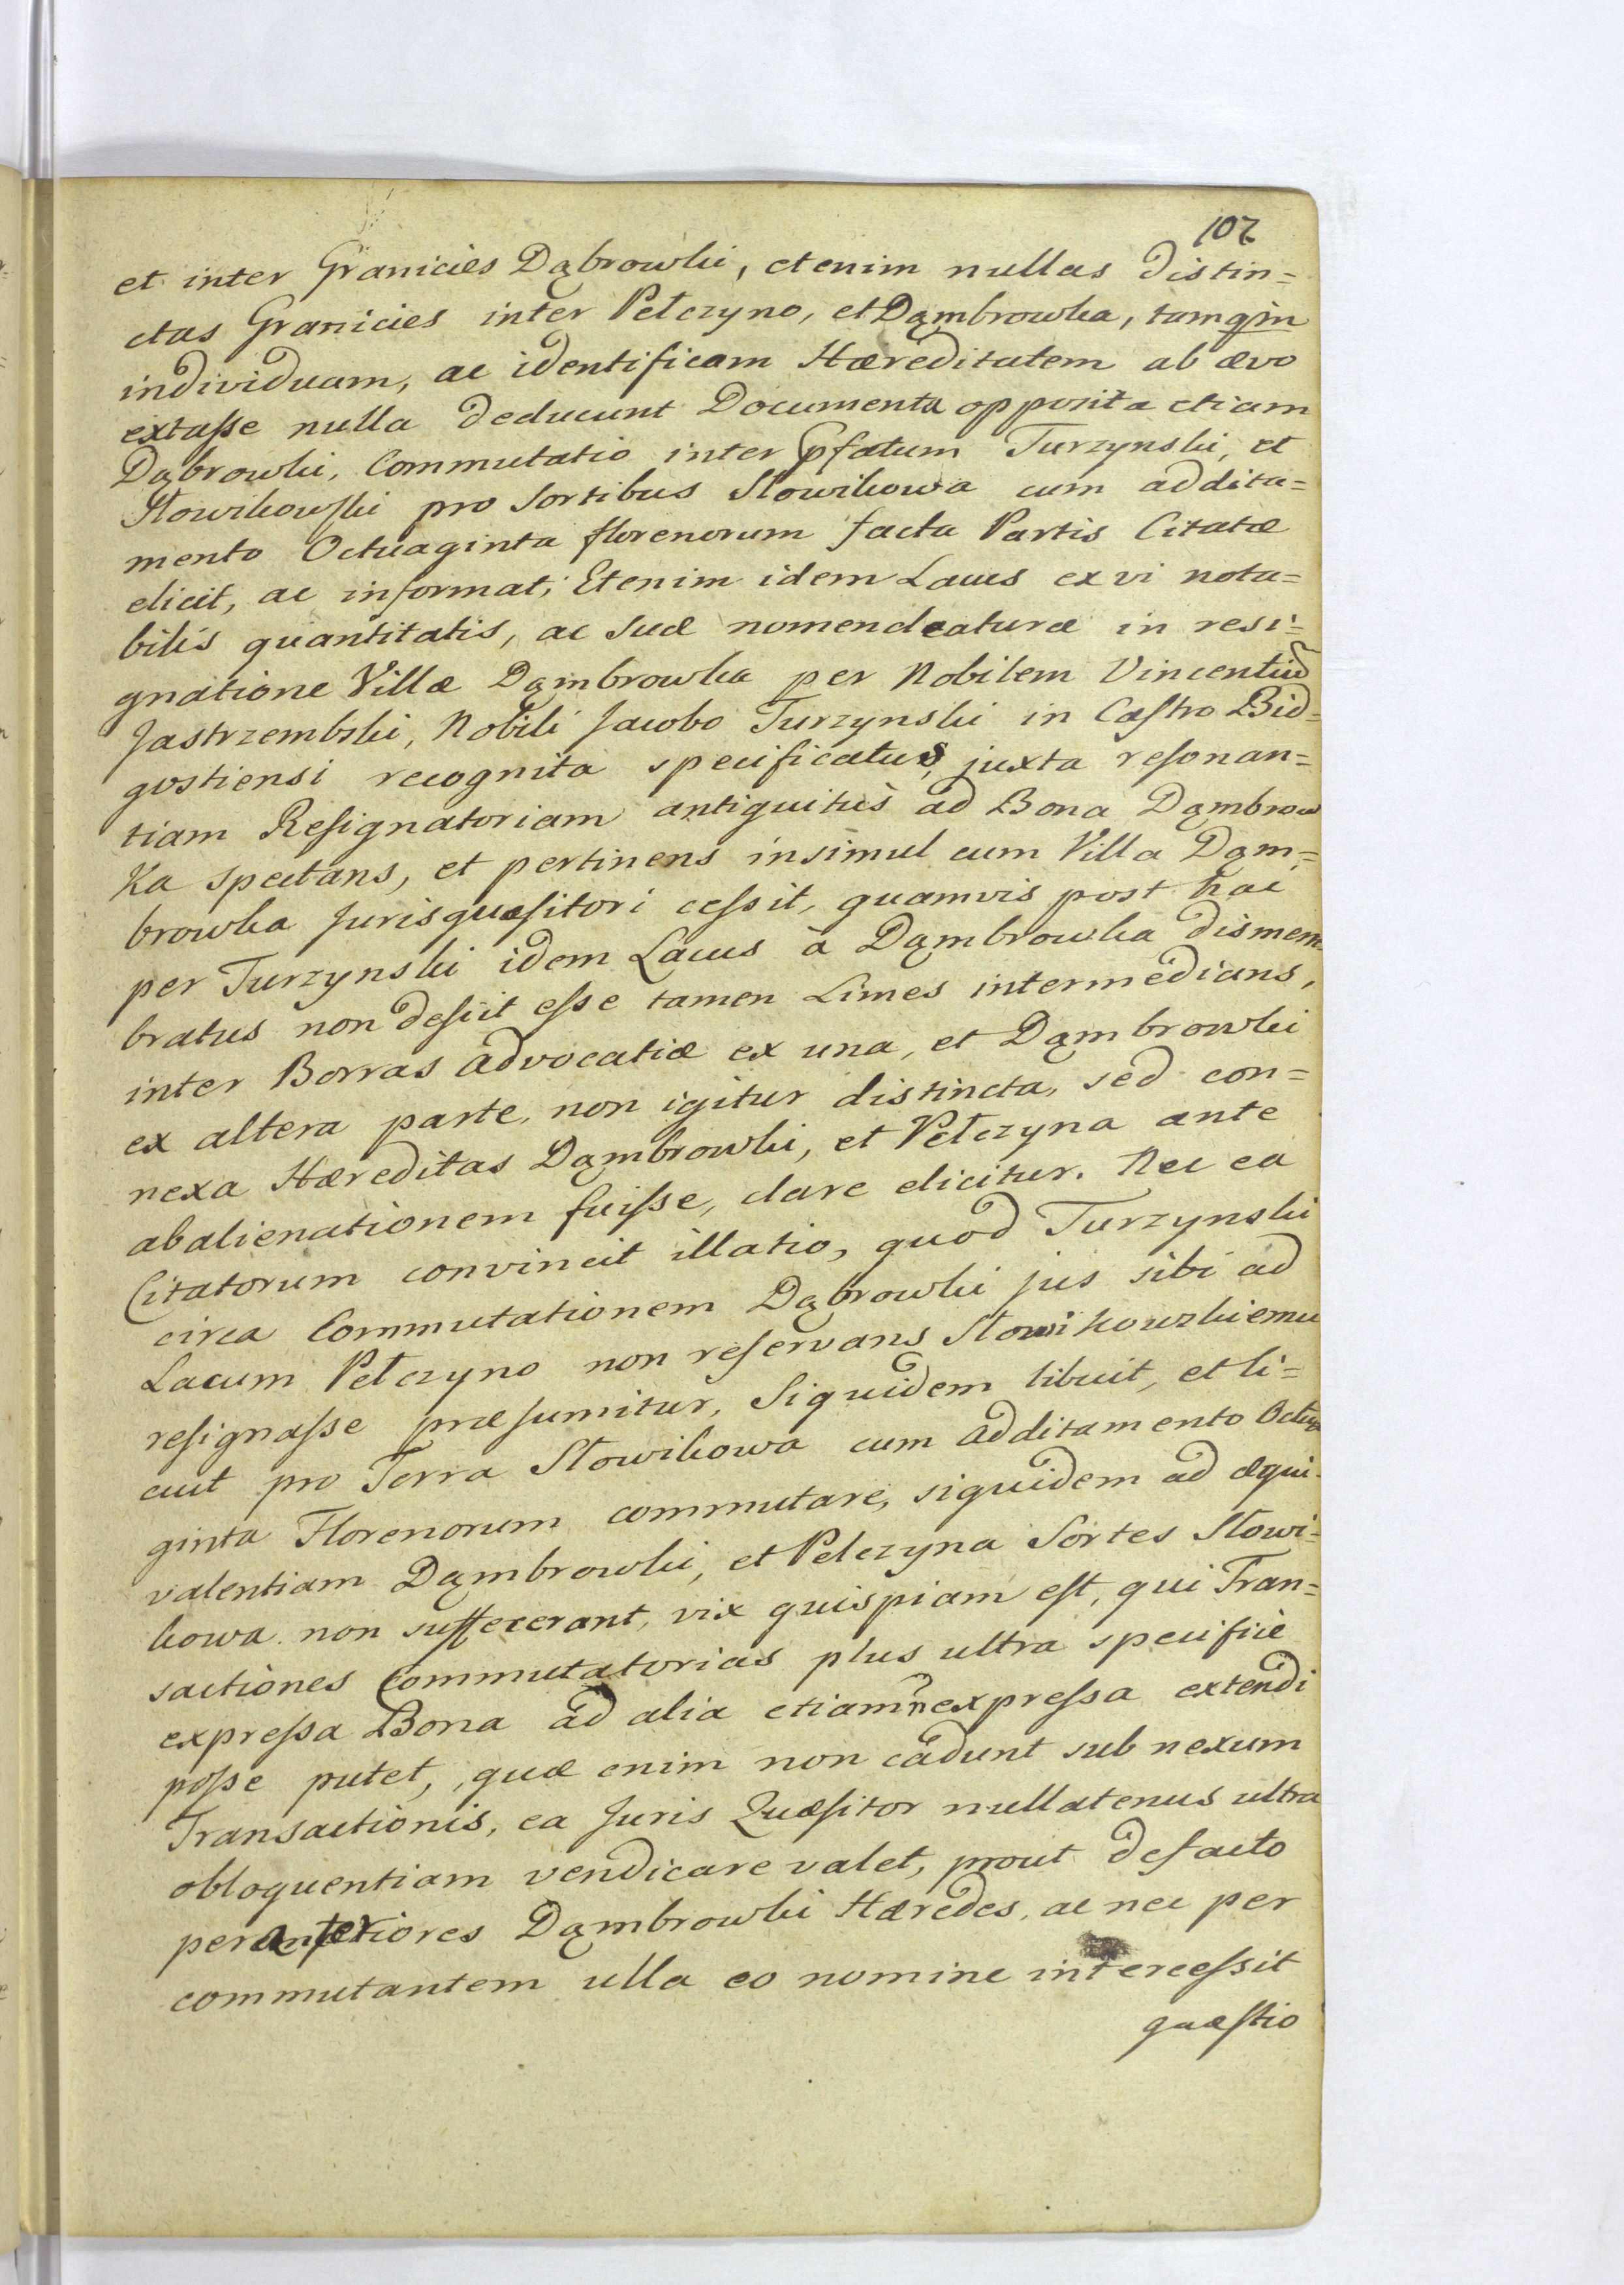 107
et inter Granicies Dąbrowki, etenim nullas distin=
ctas Granicies inter Pełczyno, et Dąmbrowka, tamqm̄
individuam, ac identificam Hæreditatem ab ævo
extasse nulla deducunt Documenta opposita etiam
Dąbrowki, Commutatio inter Ppfatum Turzynski, et
Słowikowski pro Sortibus Słowikowa cum addita=
mento Octuaginta florenorum facta Partis Citatæ
elicit, ac informat; Etenim idem Lacus ex vi nota=
bilis quantitatis, ac suæ nomencleaturæ in resi=
gnatione Villæ Dąmbrowka per Nobilem Vincentiū
Jastrzembski, Nobili Jacobo Turzynski in Castro Bid=
gostiensi recognita specificatus, juxta resonan=
tiam Resignatoriam antiquitus ad Bona Dąmbrow
Ka spectans, et pertinens insimul cum Villa Dąm=
browka Jurisquæsitori cessit, quamvis post hac
per Turzynski idem Lacus à Dąmbrowka dismem
bratus non desiit esse tamen Limes intermedians,
inter Borras Advocatiæ ex una, et Dąmbrowki
ex altera parte, non igitur distincta, sed con=
nexa Hæreditas Dąmbrowki, et Pełczyna ante
abalienationem fuisse, clare elicitur. Nec ea
Citatorum convincit illatio, quod Turzynski
circa Commutationem Dąbrowki jus sibi ad
Lacum Pełczyno non reservans Słowikowskiemu
resignasse præsumitur, Siquidem libuit, et li=
cuit pro Terra Słowikowa cum additamento Octua
ginta Florenorum commutare, siquidem ad æqui=
valentiam Dąmbrowki, et Pelczyna Sortes Słowi=
kowa non suffecerant, vix quispiam est, qui Tran=
sactiones Commutatorias plus ultra specificè
expressa Bona ad alia etiam ñ expressa extendi
posse putet, quæ enim non cadunt sub nexum
Transactionis, ea Juris Quæsitor nullatenus ultra
obloquentiam vendicare valet, prout de facto
per anteriores Dąmbrowki Hæredes, ac nec per
commutantem ulla eo nomine intercessit
quæstio